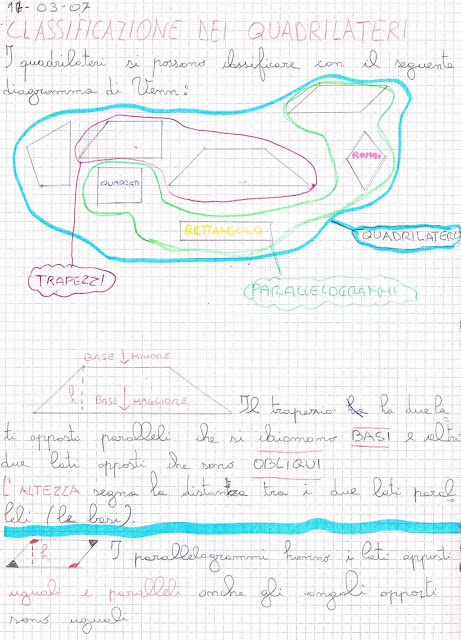 17-03-07
CLASSIFICAZIONE DEI QUADRILATERI
I quadrilateri si possono classificare con il seguente
diagramma di Venn:
ROMBI
QUADRATI
RETTANGOLO
QUADRILATERI
TRAPEZZI
PARALLELOGRAMMI
BASE MINORE
h BASE MAGGIORE
Il trapezio ha due la
ti opposti paralleli che si chiamano BASI e altri
due lati opposti che sono OBLIQUI
L'ALTEZZA segna la distanza tra i due lati paral
leli (le basi).
h I parallelogrammi hanno i lati opposti
uguali e paralleli anche gli angoli opposti
sono uguali